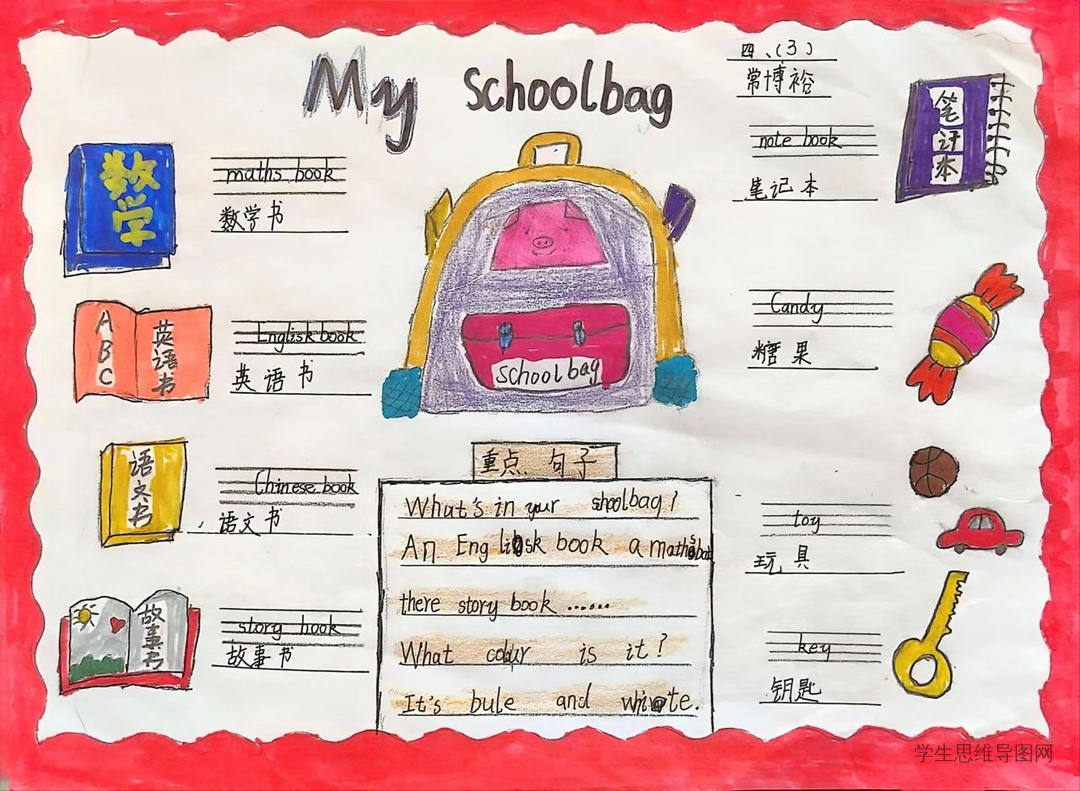 My schoolbag
四、(3)
常博裕
数学
maths book
数学书
A B C
英语书
Englisk book
英语书
语文书
Chinese book
语文书
故事书
story book
故事书
schoolbag
重点 句子
What's in your shoolbag?
An Englisk book a maths
there story book ......
What colour is it?
It's bule and white.
note book
笔记本
笔记本
Candy
糖果
toy
玩具
key
钥匙
学生思维导图网